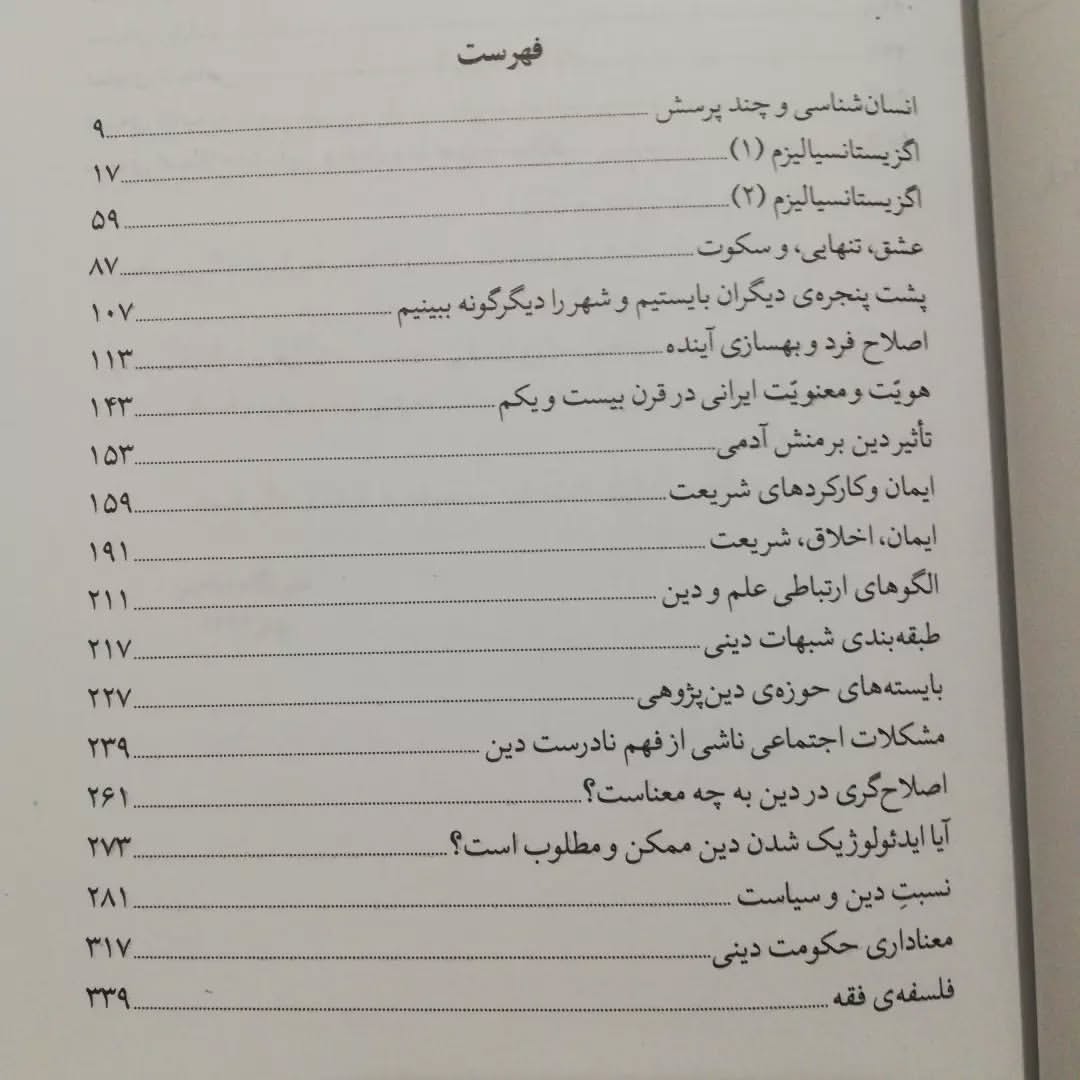 فهرست
انسان‌شناسی و چند پرسش ........ ۹
اگزیستانسیالیزم (۱) ........ ۱۷
اگزیستانسیالیزم (۲) ........ ۵۹
عشق، تنهایی، و سکوت ........ ۸۷
پشت پنجره‌ی دیگران بایستیم و شهر را دیگرگونه ببینیم ........ ۱۰۷
اصلاح فرد و بهسازی آینده ........ ۱۱۳
هویّت و معنویّت ایرانی در قرن بیست و یکم ........ ۱۴۳
تأثیر دین بر منش آدمی ........ ۱۵۳
ایمان و کارکردهای شریعت ........ ۱۵۹
ایمان، اخلاق، شریعت ........ ۱۹۱
الگوهای ارتباطی علم و دین ........ ۲۱۱
طبقه‌بندی شبهات دینی ........ ۲۱۷
بایسته‌های حوزه‌ی دین‌پژوهی ........ ۲۲۷
مشکلات اجتماعی ناشی از فهم نادرست دین ........ ۲۳۹
اصلاح‌گری در دین به چه معناست؟ ........ ۲۶۱
آیا ایدئولوژیک شدن دین ممکن و مطلوب است؟ ........ ۲۷۳
نسبتِ دین و سیاست ........ ۲۸۱
معناداری حکومت دینی ........ ۳۱۷
فلسفه‌ی فقه ........ ۳۳۹